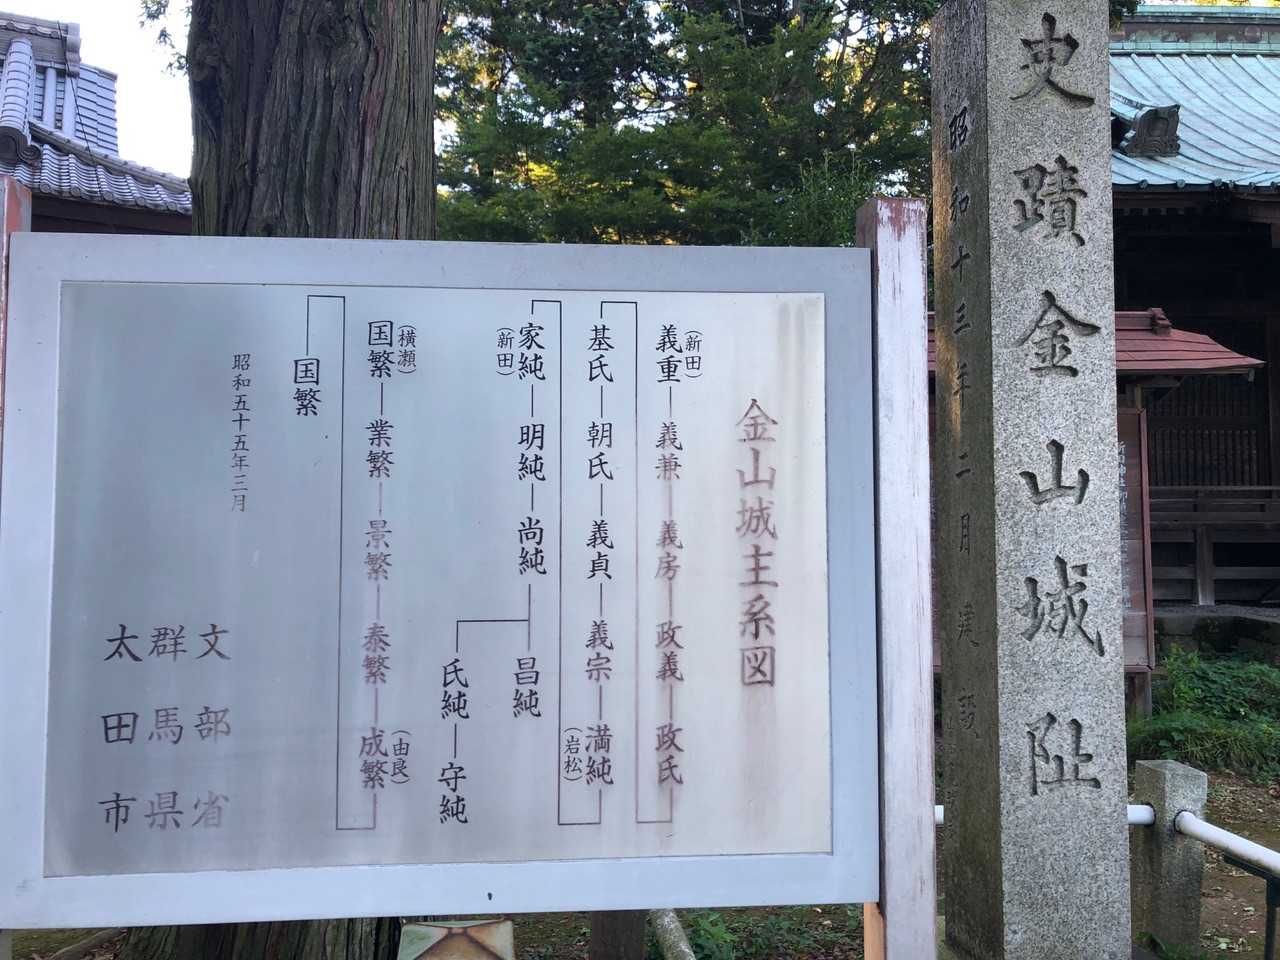 史蹟金山城阯
昭和十三年二月建設
金山城主系図
(新田)
義重―義兼―義房―政義―政氏
基氏―朝氏―義貞―義宗―満純
(岩松)
家純―明純―尚純―昌純
(新田)
氏純―守純
(横瀬)
国繁―業繁―景繁―泰繁―成繁
(由良)
国繁
昭和五十五年三月
文部省
群馬県
太田市